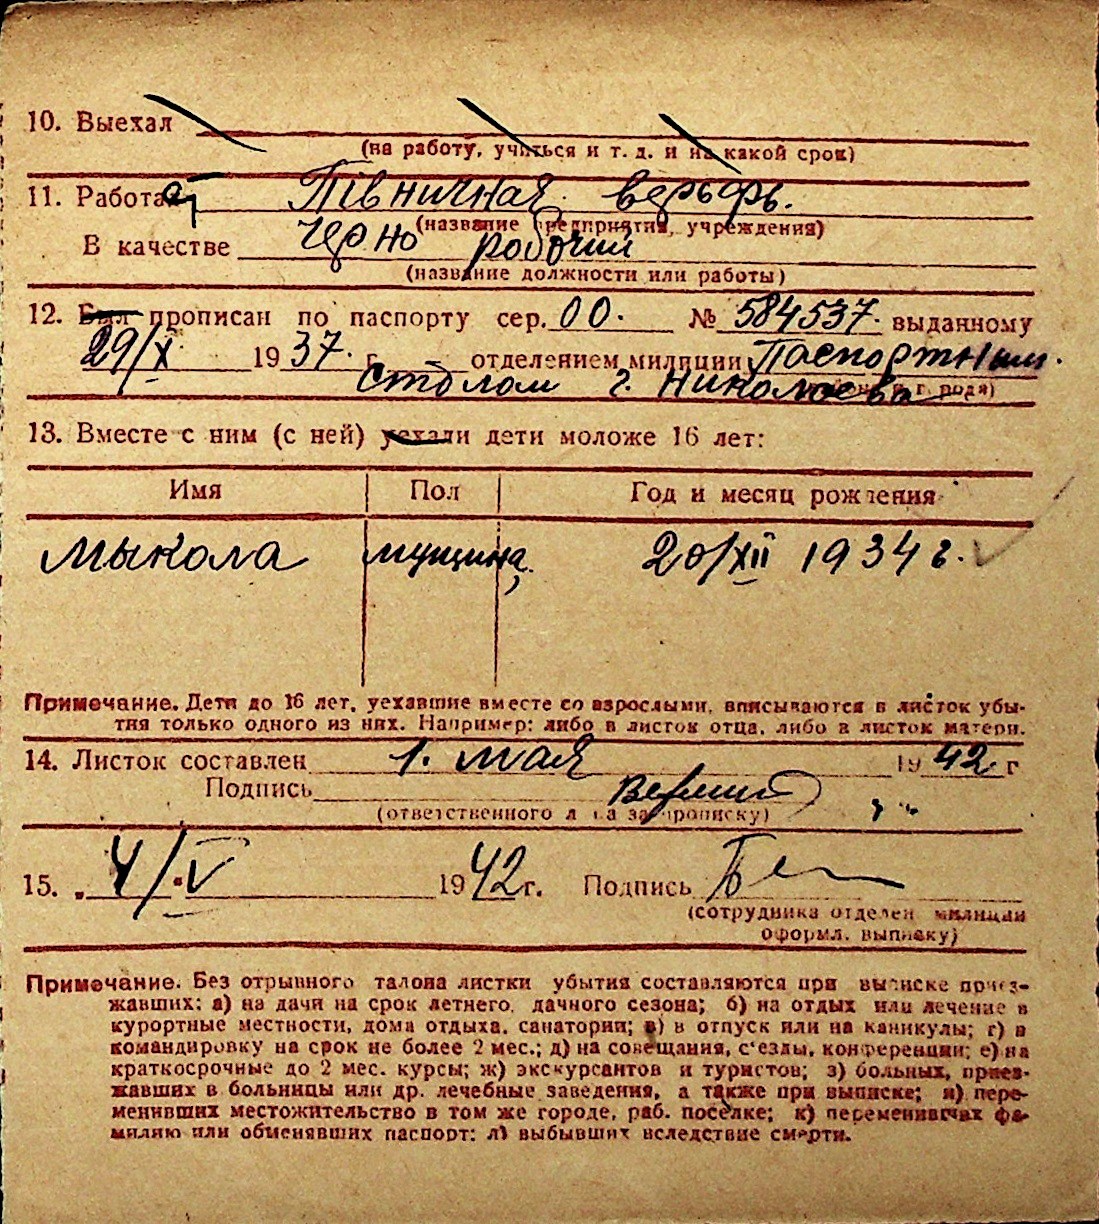 10. Выехал
(на работу, учиться и т. д. и на какой срок)
11. Работает Півничная верьфь.
(название предприятия, учреждения)
В качестве черно рабочий
(название должности или работы)
12. Был прописан по паспорту сер. 00. № 584537. выданному
29/X 1937. г. отделением милиции Паспортным.
столом г. Николаева
13. Вместе с ним (с ней) уехали дети моложе 16 лет:
Имя Пол Год и месяц рождения
Мыкола мущина, 20/XII 1934 г.
Примечание. Дети до 16 лет, уехавшие вместе со взрослыми, вписываются в листок убы-
тия только одного из них. Например: либо в листок отца, либо в листок матери.
14. Листок составлен 1. мая 1942 г
Подпись
(ответственного лица за прописку)
15. „ 4/V 1942 г. Подпись
(сотрудника отделен милиции
оформл. выписку)
Примечание. Без отрывного талона листки убытия составляются при выписке приез-
жавших: а) на дачи на срок летнего, дачного сезона; б) на отдых или лечение в
курортные местности, дома отдыха, санатории; в) в отпуск или на каникулы; г) в
командировку на срок не более 2 мес.; д) на совещания, с'езды, конференции; е) на
краткосрочные до 2 мес. курсы; ж) экскурсантов и туристов; з) больных, приез-
жавших в больницы или др. лечебные заведения, а также при выписке; и) пере-
менивших местожительство в том же городе, раб. поселке; к) переменивших фа-
милию или обменявших паспорт; л) выбывших вследствие смерти.